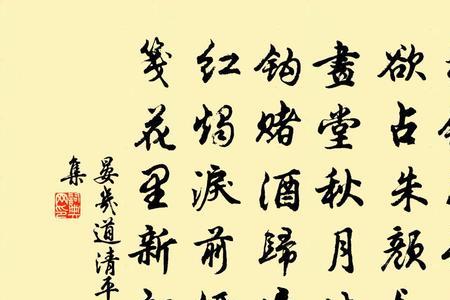 欲占朱顏
畫堂秋月
鈎賭酒歸
紅燭淚前
箋花里新
晏幾道清平
集